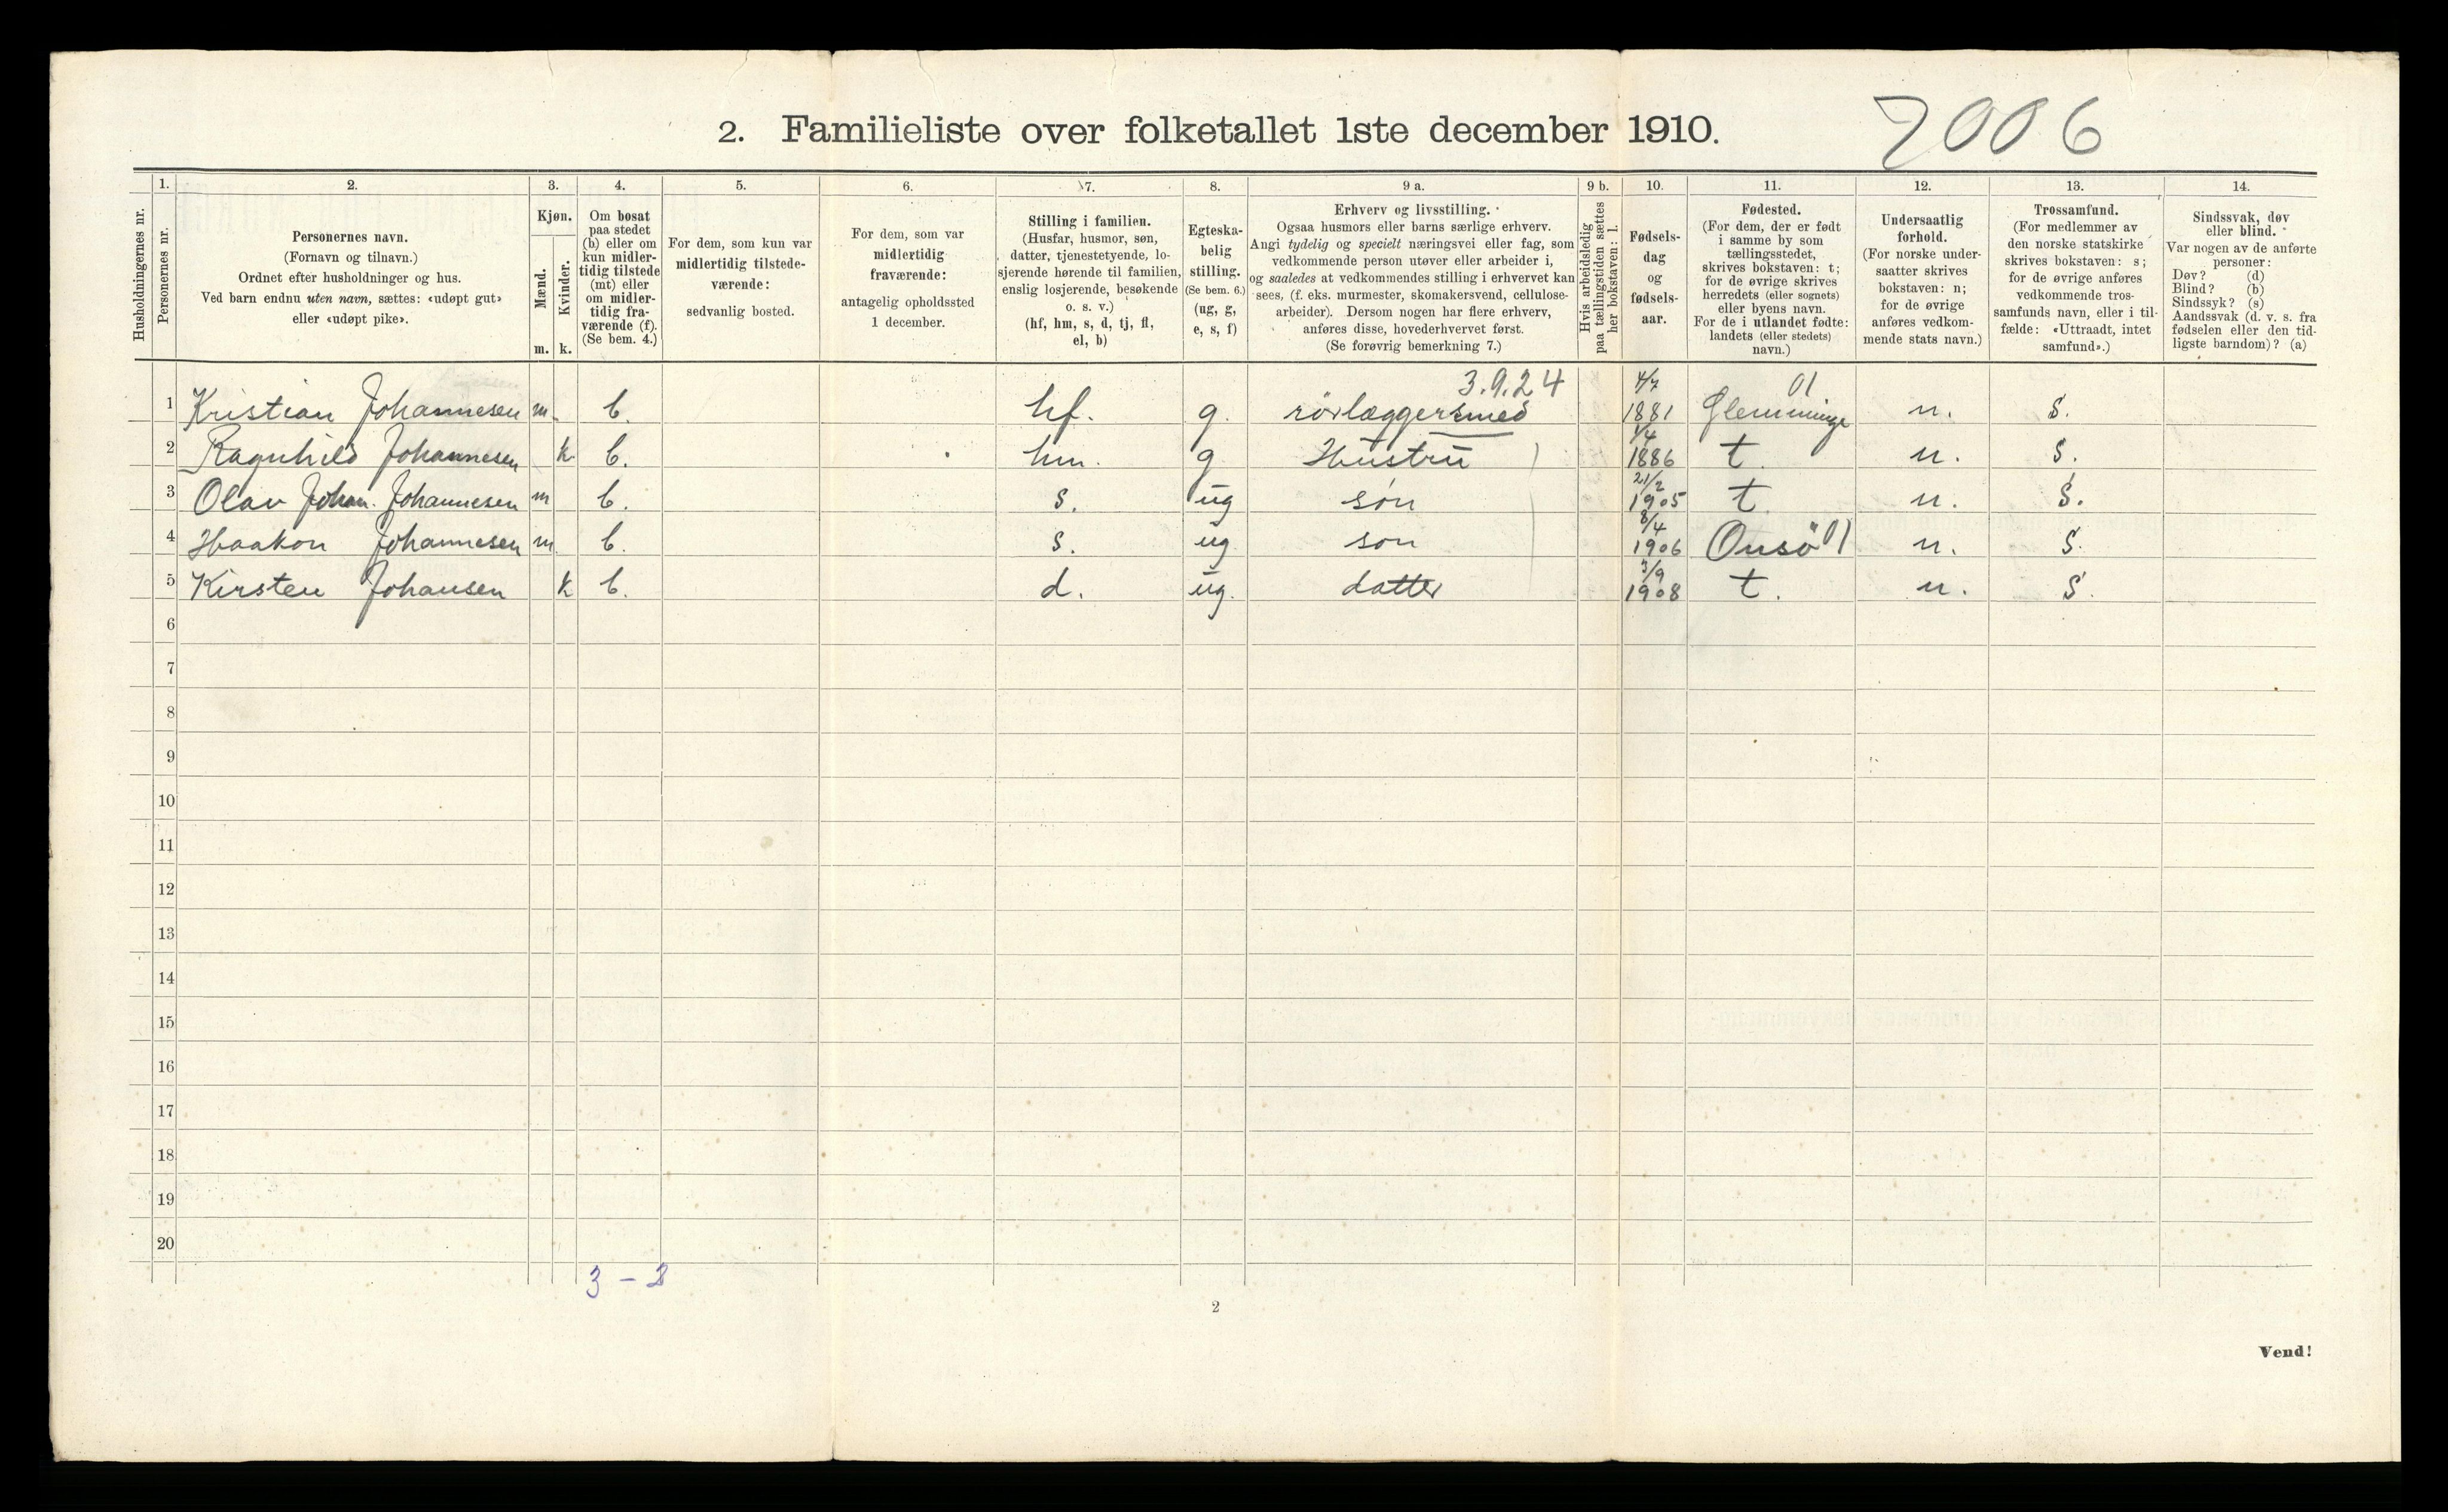 2. Familieliste over folketallet 1ste december 1910.
7006
Husholdningernes nr.
1.
Personernes nr.
2.
Personernes navn.
(Fornavn og tilnavn.)
Ordnet efter husholdninger og hus.
Ved barn endnu uten navn, sættes: «udøpt gut»
eller «udøpt pike».
3.
Kjøn.
Mænd.
m.
Kvinder.
k.
4.
Om bosat
paa stedet
(b) eller om
kun midler-
tidig tilstede
(mt) eller
om midler-
tidig fra-
værende (f).
(Se bem. 4.)
5.
For dem, som kun var
midlertidig tilstede-
værende:
sedvanlig bosted.
6.
For dem, som var
midlertidig
fraværende:
antagelig opholdssted
1 december.
7.
Stilling i familien.
(Husfar, husmor, søn,
datter, tjenestetyende, lo-
sjerende hørende til familien,
enslig losjerende, besøkende
o. s. v.)
(hf, hm, s, d, tj, fl,
el, b)
8.
Egteska-
belig
stilling.
(Se bem. 6.)
(ug, g,
e, s, f)
9 a.
Erhverv og livsstilling.
Ogsaa husmors eller barns særlige erhverv.
Angi tydelig og specielt næringsvei eller fag, som
vedkommende person utøver eller arbeider i,
og saaledes at vedkommendes stilling i erhvervet kan
sees, (f. eks. murmester, skomakersvend, cellulose-
arbeider). Dersom nogen har flere erhverv,
anføres disse, hovederhvervet først.
(Se forøvrig bemerkning 7.)
9 b.
Hvis arbeidsledig
paa tællingstiden sættes
her bokstaven: l.
10.
Fødsels-
dag
og
fødsels-
aar.
11.
Fødested.
(For dem, der er født
i samme by som
tællingsstedet,
skrives bokstaven: t;
for de øvrige skrives
herredets (eller sognets)
eller byens navn.
For de i utlandet fødte:
landets (eller stedets)
navn.)
12.
Undersaatlig
forhold.
(For norske under-
saatter skrives
bokstaven: n;
for de øvrige
anføres vedkom-
mende stats navn.)
13.
Trossamfund.
(For medlemmer av
den norske statskirke
skrives bokstaven: s;
for de øvrige anføres
vedkommende tros-
samfunds navn, eller i til-
fælde: «Uttraadt, intet
samfund».)
14.
Sindssvak, døv
eller blind.
Var nogen av de anførte
personer:
Døv? (d)
Blind? (b)
Sindssyk? (s)
Aandssvak (d. v. s. fra
fødselen eller den tid-
ligste barndom)? (a)
3.9.24 4/7 01
1 Kristian Johannesen m. b. hf. g. rörlæggersmed 1881 Glemminge n. s.
1/4
2 Ragnhild Johannesen k b. hm. g Hustru 1886 t. n. s.
21/2
3 Olav Johan. Johannesen m b. s. ug søn 1905 t. n. s.
8/4
4 Haakon Johannesen m. b. s. ug søn 1906 Onsö 01 n. s.
3/9
5 Kirsten Johansen k b. d. ug. datter 1908 t. n. s.
6
7
8
9
10
11
12
13
14
15
16
17
18
19
20
3 – 2
2
Vend!